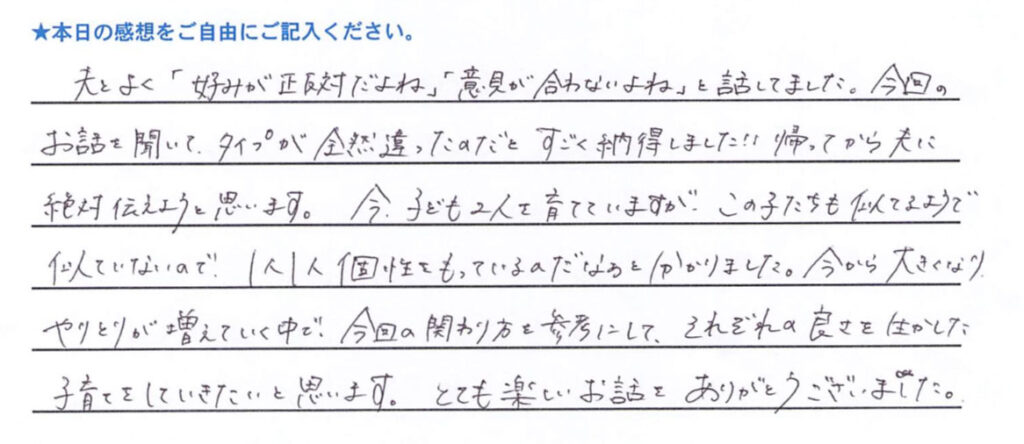 ★本日の感想をご自由にご記入ください。
夫とよく「好みが正反対だよね」「意見が合わないよね」と話してました。今回の
お話を聞いて、タイプが全然違ったのだとすごく納得しました!! 帰ってから夫に
絶対伝えようと思います。 今、子ども2人を育てていますが、この子たちも似てるようで
似ていないので、1人1人個性をもっているのだなあと分かりました。今から大きくなり、
やりとりが増えていく中で、今回の関わり方を参考にして、それぞれの良さを生かした
子育てをしていきたいと思います。 とても楽しいお話をありがとうございました。